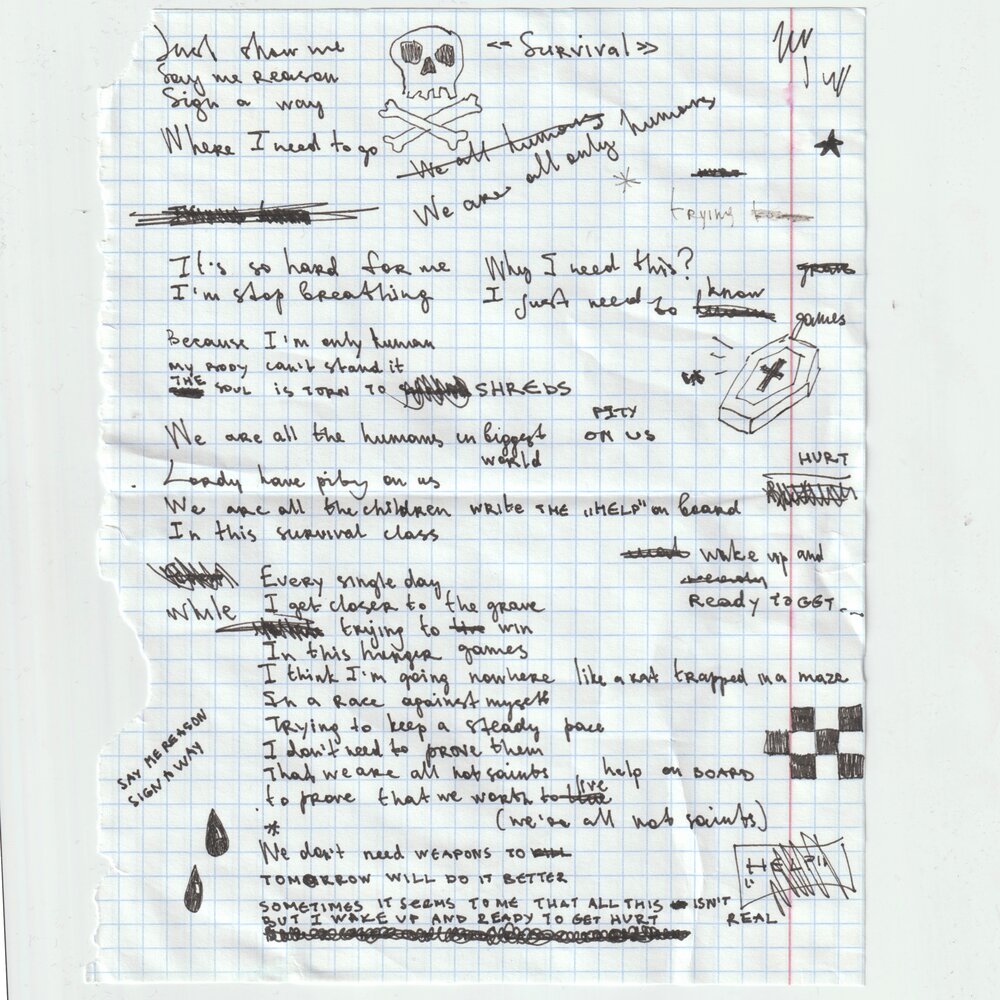 Just show me
Say me reason
Sign a way
Where I need to go
«Survival»
We all humans
We are all only humans
trying
It's so hard for me
I'm stop breathing
Why I need this?
I just need to know
grave
games
Because I'm only human
MY BODY can't stand it
THE SOUL IS TORN TO SHREDS
We are all the humans in biggest
world
PITY
ON US
Lordy have pity on us
We are all the children WRITE THE „HELP" on board
In this survival class
HURT
wake up and
READY TO GET...
Every single day
While I get closer to the grave
trying to live win
In this hunger games
I think I'm going nowhere like a rat trapped in a maze
In a race against myself
Trying to keep a steady pace
I don't need to prove them
That we are all not saints
help on BOARD
to prove that we worth to live
live
(we're all not saints)
SAY ME REASON
SIGN A WAY
*
We don't need WEAPONS TO KILL
TOMORROW WILL DO IT BETTER
„HELP"
SOMETIMES IT SEEMS TO ME THAT ALL THIS ISN'T
REAL
BUT I WAKE UP AND READY TO GET HURT